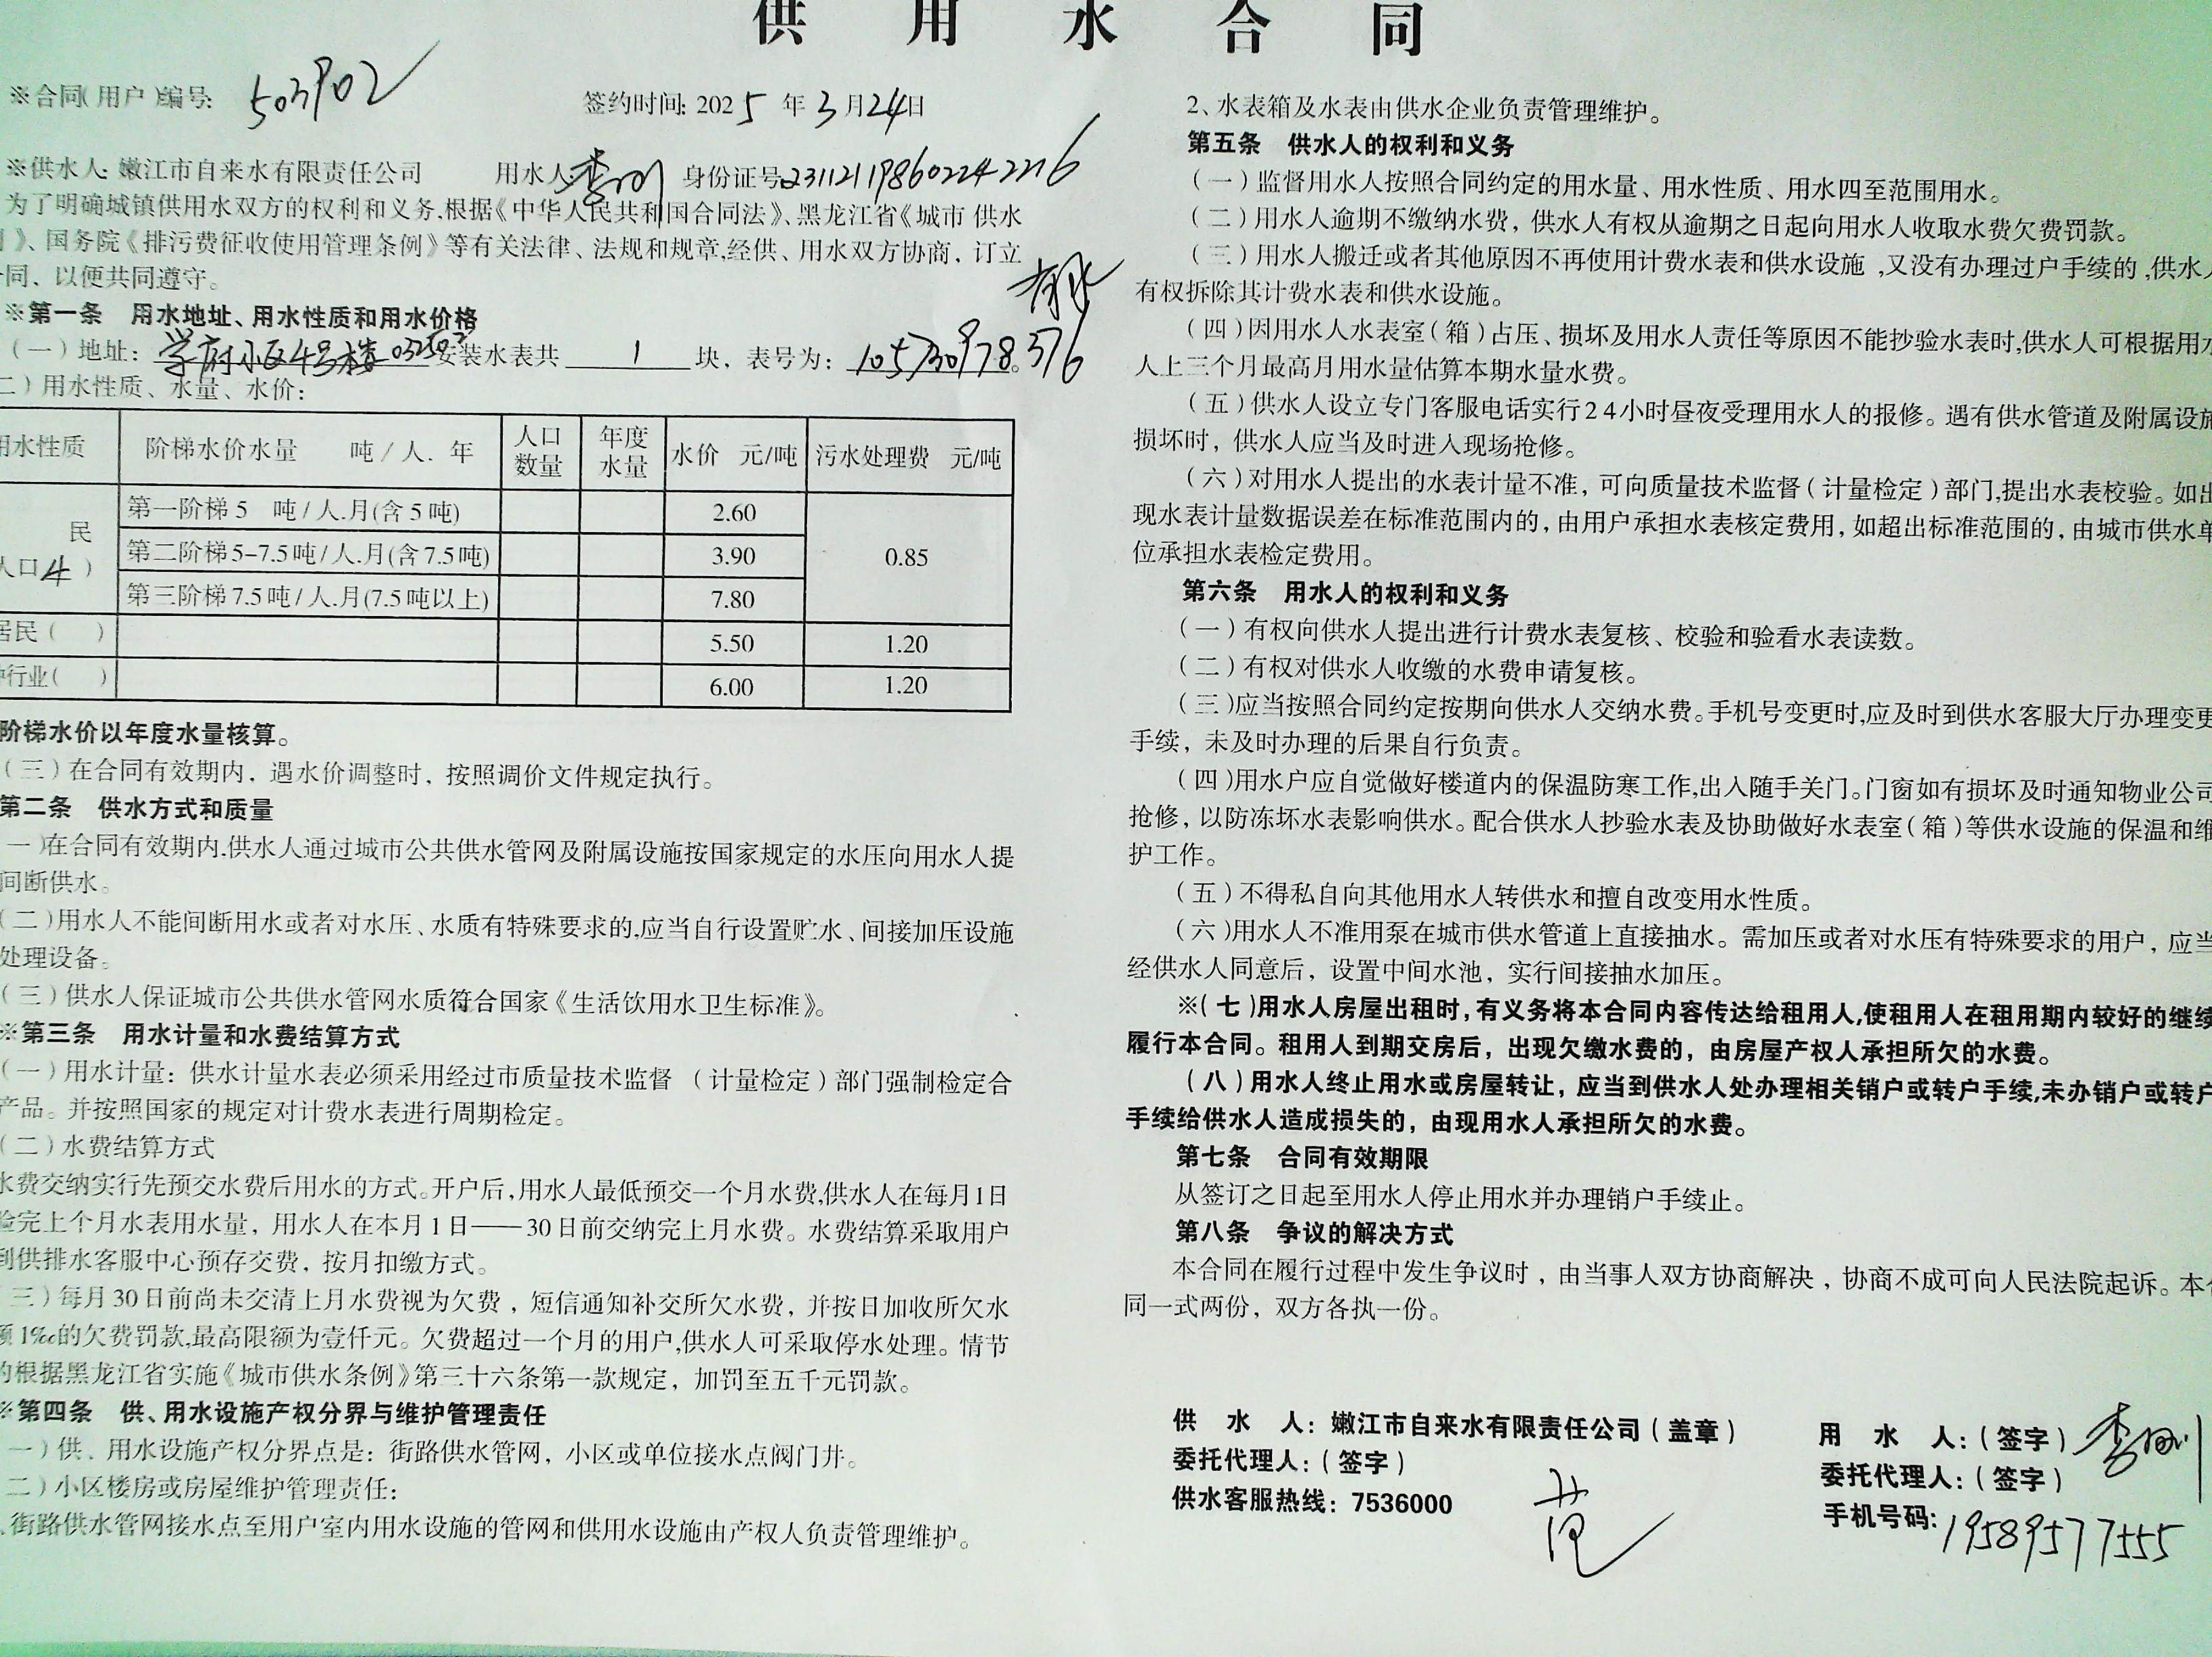 供用水合同
※合同(用户)编号: 503902
签约时间: 2025年3月24日
※供水人: 嫩江市自来水有限责任公司 用水人: 李刚 身份证号: 231121198602242216
为了明确城镇供用水双方的权利和义务,根据《中华人民共和国合同法》、黑龙江省《城市 供水
》、国务院《排污费征收使用管理条例》等有关法律、法规和规章,经供、用水双方协商,订立
同,以便共同遵守。
※第一条 用水地址、用水性质和用水价格
(一)地址: 学府小区4号楼 安装水表共 1 块,表号为: 105730978376。
二)用水性质、水量、水价:
用水性质 阶梯水价水量 吨/人.年 人口数量 年度水量 水价 元/吨 污水处理费 元/吨
民 第一阶梯5 吨/人.月(含5吨) 2.60
人口4) 第二阶梯5-7.5吨/人.月(含7.5吨) 3.90 0.85
第三阶梯7.5吨/人.月(7.5吨以上) 7.80
居民( ) 5.50 1.20
行业( ) 6.00 1.20
阶梯水价以年度水量核算。
(三)在合同有效期内,遇水价调整时,按照调价文件规定执行。
第二条 供水方式和质量
一)在合同有效期内,供水人通过城市公共供水管网及附属设施按国家规定的水压向用水人提
间断供水。
(二)用水人不能间断用水或者对水压、水质有特殊要求的,应当自行设置贮水、间接加压设施
处理设备。
(三)供水人保证城市公共供水管网水质符合国家《生活饮用水卫生标准》。
※第三条 用水计量和水费结算方式
(一)用水计量:供水计量水表必须采用经过市质量技术监督 (计量检定)部门强制检定合
产品。并按照国家的规定对计费水表进行周期检定。
(二)水费结算方式
水费交纳实行先预交水费后用水的方式。开户后,用水人最低预交一个月水费,供水人在每月1日
验完上个月水表用水量,用水人在本月1日——30日前交纳完上月水费。水费结算采取用户
到供排水客服中心预存交费,按月扣缴方式。
三)每月30日前尚未交清上月水费视为欠费,短信通知补交所欠水费,并按日加收所欠水
额1‰的欠费罚款,最高限额为壹仟元。欠费超过一个月的用户,供水人可采取停水处理。情节
的根据黑龙江省实施《城市供水条例》第三十六条第一款规定,加罚至五千元罚款。
※第四条 供、用水设施产权分界与维护管理责任
一)供、用水设施产权分界点是:街路供水管网,小区或单位接水点阀门井。
二)小区楼房或房屋维护管理责任:
、街路供水管网接水点至用户室内用水设施的管网和供用水设施由产权人负责管理维护。
2、水表箱及水表由供水企业负责管理维护。
第五条 供水人的权利和义务
(一)监督用水人按照合同约定的用水量、用水性质、用水四至范围用水。
(二)用水人逾期不缴纳水费,供水人有权从逾期之日起向用水人收取水费欠费罚款。
(三)用水人搬迁或者其他原因不再使用计费水表和供水设施,又没有办理过户手续的,供水人
有权拆除其计费水表和供水设施。
(四)因用水人水表室(箱)占压、损坏及用水人责任等原因不能抄验水表时,供水人可根据用水
人上三个月最高月用水量估算本期水量水费。
(五)供水人设立专门客服电话实行24小时昼夜受理用水人的报修。遇有供水管道及附属设施
损坏时,供水人应当及时进入现场抢修。
(六)对用水人提出的水表计量不准,可向质量技术监督(计量检定)部门,提出水表校验。如出
现水表计量数据误差在标准范围内的,由用户承担水表核定费用,如超出标准范围的,由城市供水单
位承担水表检定费用。
第六条 用水人的权利和义务
(一)有权向供水人提出进行计费水表复核、校验和验看水表读数。
(二)有权对供水人收缴的水费申请复核。
(三)应当按照合同约定按期向供水人交纳水费。手机号变更时,应及时到供水客服大厅办理变更
手续,未及时办理的后果自行负责。
(四)用水户应自觉做好楼道内的保温防寒工作,出入随手关门。门窗如有损坏及时通知物业公司
抢修,以防冻坏水表影响供水。配合供水人抄验水表及协助做好水表室(箱)等供水设施的保温和维
护工作。
(五)不得私自向其他用水人转供水和擅自改变用水性质。
(六)用水人不准用泵在城市供水管道上直接抽水。需加压或者对水压有特殊要求的用户,应当
经供水人同意后,设置中间水池,实行间接抽水加压。
※(七)用水人房屋出租时,有义务将本合同内容传达给租用人,使租用人在租用期内较好的继续
履行本合同。租用人到期交房后,出现欠缴水费的,由房屋产权人承担所欠的水费。
(八)用水人终止用水或房屋转让,应当到供水人处办理相关销户或转户手续,未办销户或转户
手续给供水人造成损失的,由现用水人承担所欠的水费。
第七条 合同有效期限
从签订之日起至用水人停止用水并办理销户手续止。
第八条 争议的解决方式
本合同在履行过程中发生争议时,由当事人双方协商解决,协商不成可向人民法院起诉。本合
同一式两份,双方各执一份。
供 水 人:嫩江市自来水有限责任公司(盖章)
委托代理人:(签字) 范
供水客服热线:7536000
用 水 人:(签字) 李刚
委托代理人:(签字)
手机号码: 19589577555